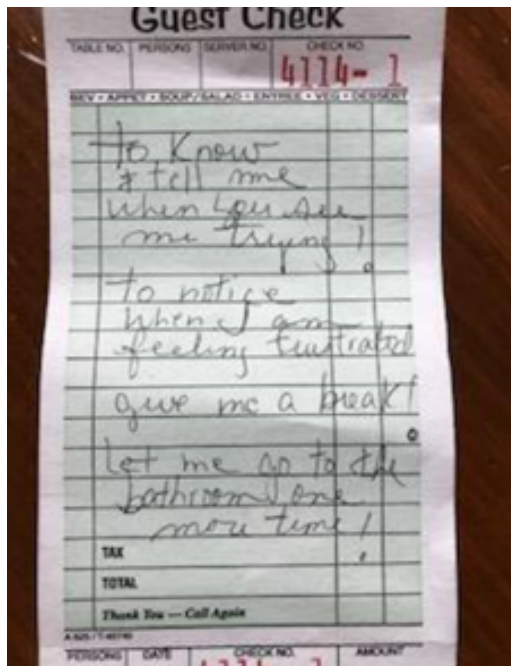 Guest Check
TABLE NO. PERSONS SERVER NO. CHECK NO.
4114- 1
BEV • APPET • SOUP/SALAD • ENTREE • VEG • DESSERT
to know
& tell me
when you see
me trying!
to notice
when I am
feeling frustrated
give me a break!
Let me go to the
bathroom one
more time!
TAX
TOTAL
Thank You — Call Again
PERSONS DATE CHECK NO. AMOUNT